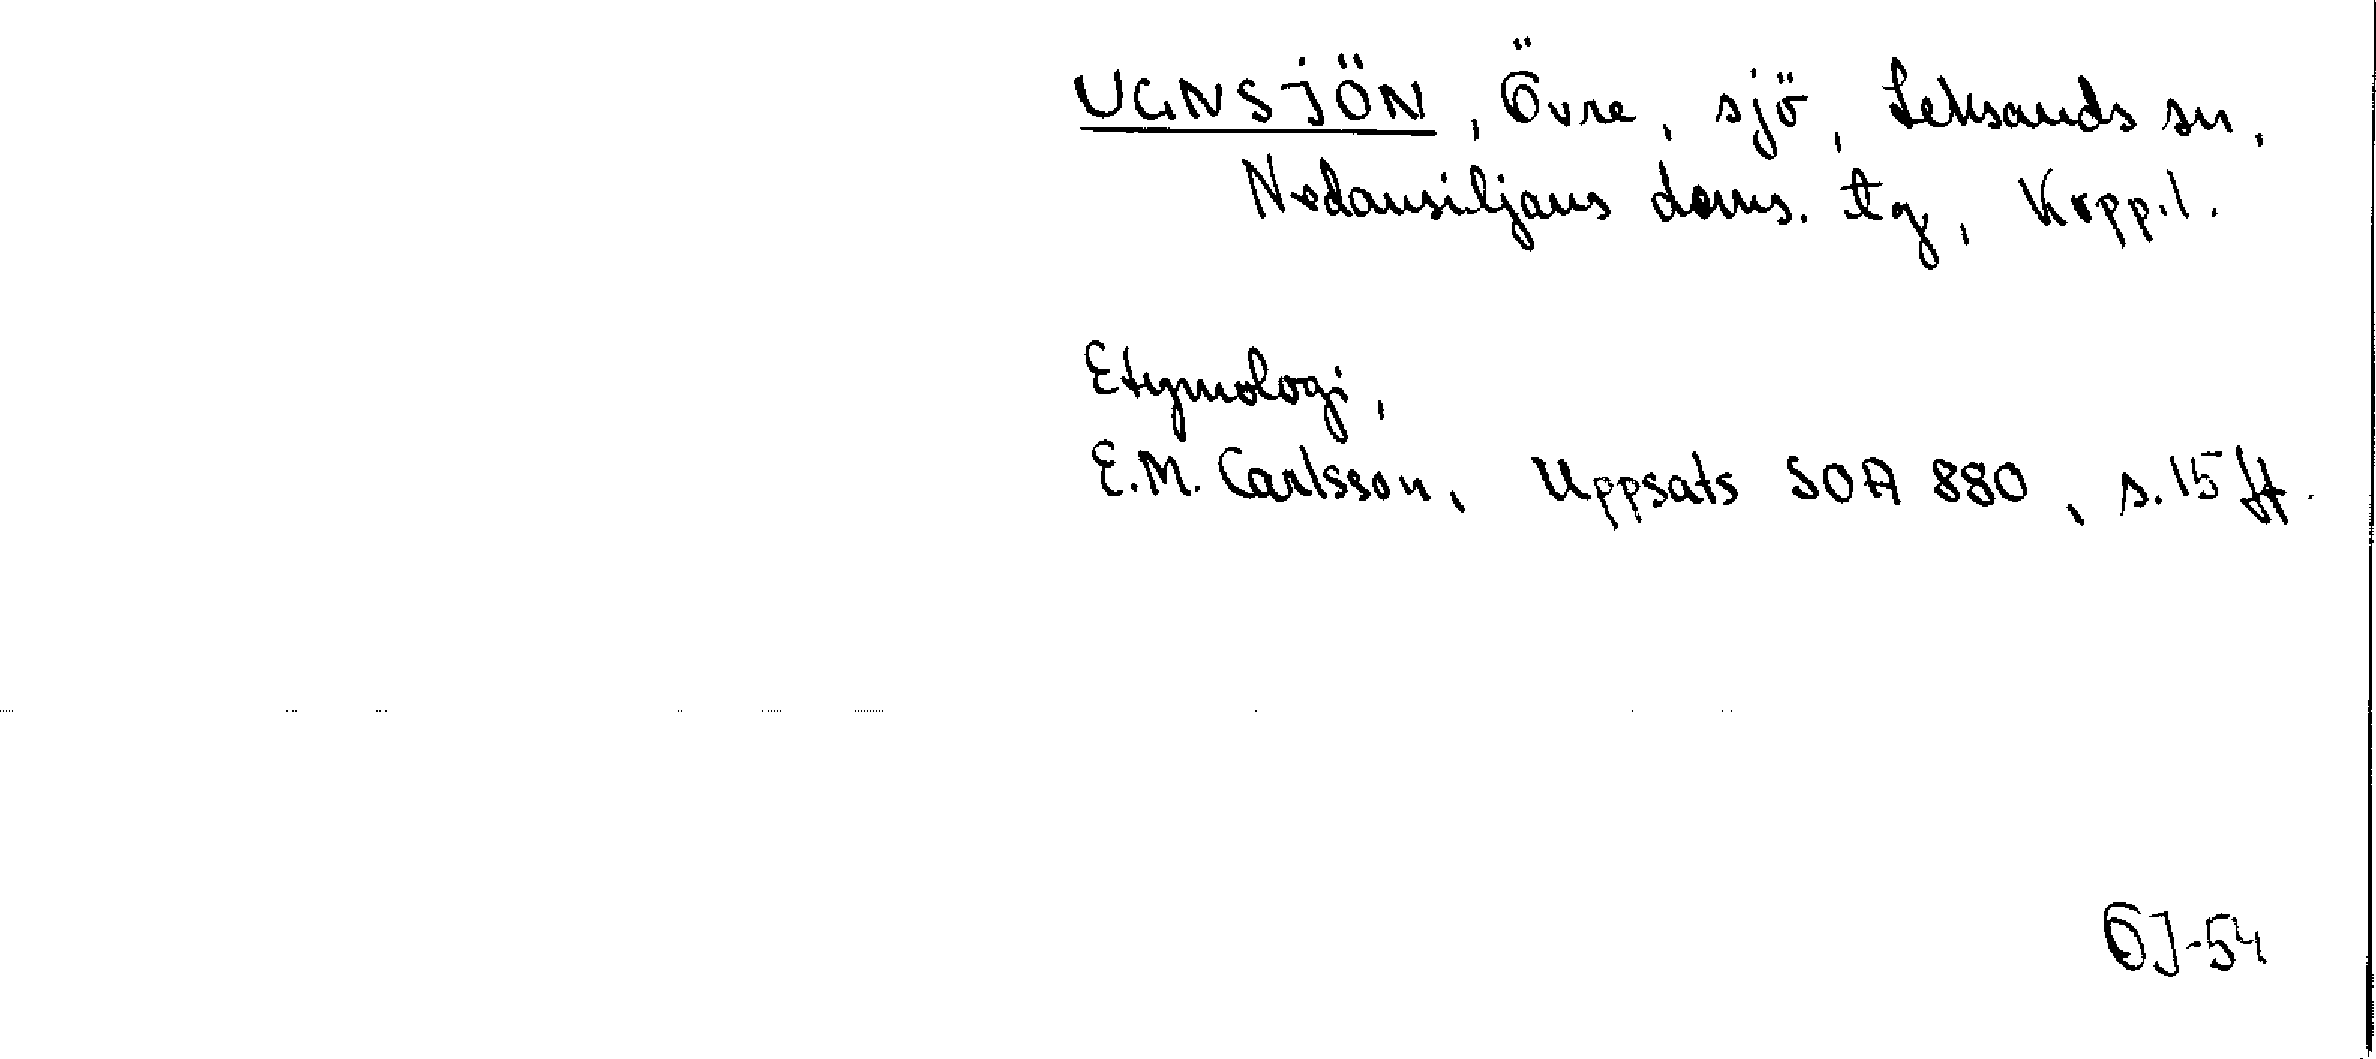 UGNSJÖN, Övre, sjö, Leksands sn,
Nedansiljans doms. tg, Kopp.l.
Etymologi,
E.M. Carlsson, Uppsats SOA 880, s. 15 ff.
OJ-54